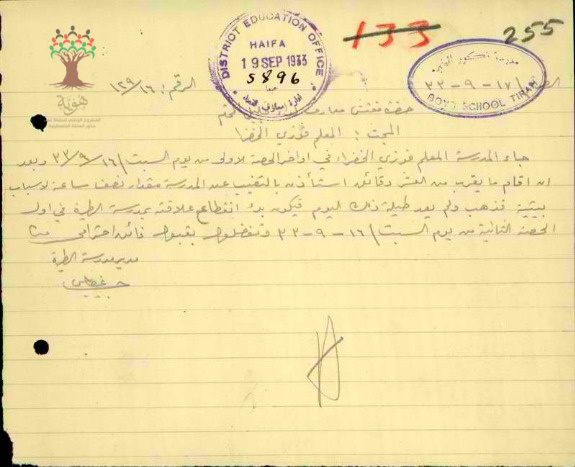 133
255
DISTRICT EDUCATION OFFICE
HAIFA
19 SEP 1933
5896
حيفا
ادارة معارف لواء
مدرسة ذكور الطيرة
٣٣-٩-١٧
BOYS SCHOOL TIRAH
هوية
الرقم: ١٢٩/١٦
حضرة مفتش معارف
المبحث: المعلم فوزي الخضرا
جاء المدرسة المعلم فوزي الخضراء في اواخر الحصة الاولى من يوم السبت ١٦/٩/٣٣ وبعد
ان اقام ما يقرب من العشر دقائق استأذن بالتغيب عن المدرسة مقدار نصف ساعة لاسباب
بيتية فذهب ولم يعد طيلة ذلك اليوم فيكون بدء انقطاع علاقته بمدرسة الطيرة في اول
الحصة الثانية من يوم السبت ١٦-٩-٣٣ وتفضلوا بقبول فائق احترامي
مدير مدرسة الطيرة